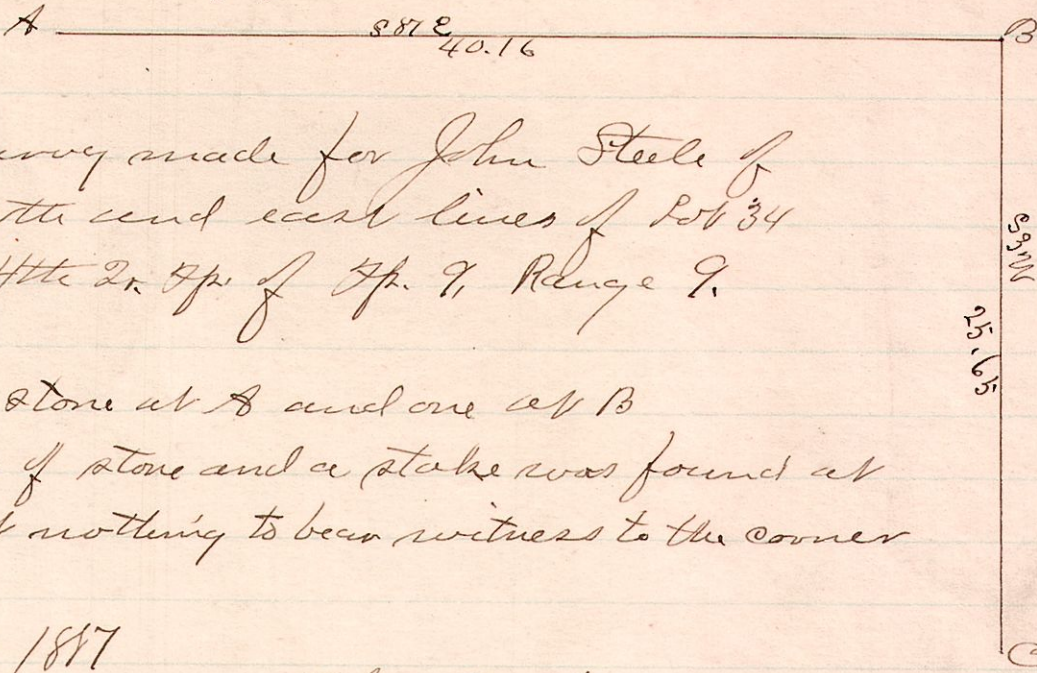 A B
S 87 E
40.16
made for John Steele of
and east lines of Lot 34
4th Qr. Tp. of Tp. 9, Range 9.
S 3 W
25.65
stone at A and one at B
of stone and a stake was found at
nothing to bear witness to the corner
1887
C